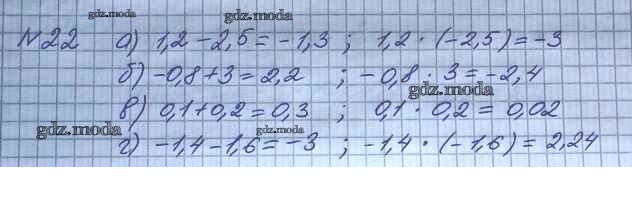 gdz.moda gdz.moda
№22 а) 1,2-2,5=-1,3 ; 1,2·(-2,5)=-3
б) -0,8+3=2,2 ; -0,8·3=-2,4
gdz.moda
в) 0,1+0,2=0,3 ; 0,1·0,2=0,02
gdz.moda gdz.moda
г) -1,4-1,6=-3 ; -1,4·(-1,6)=2,24